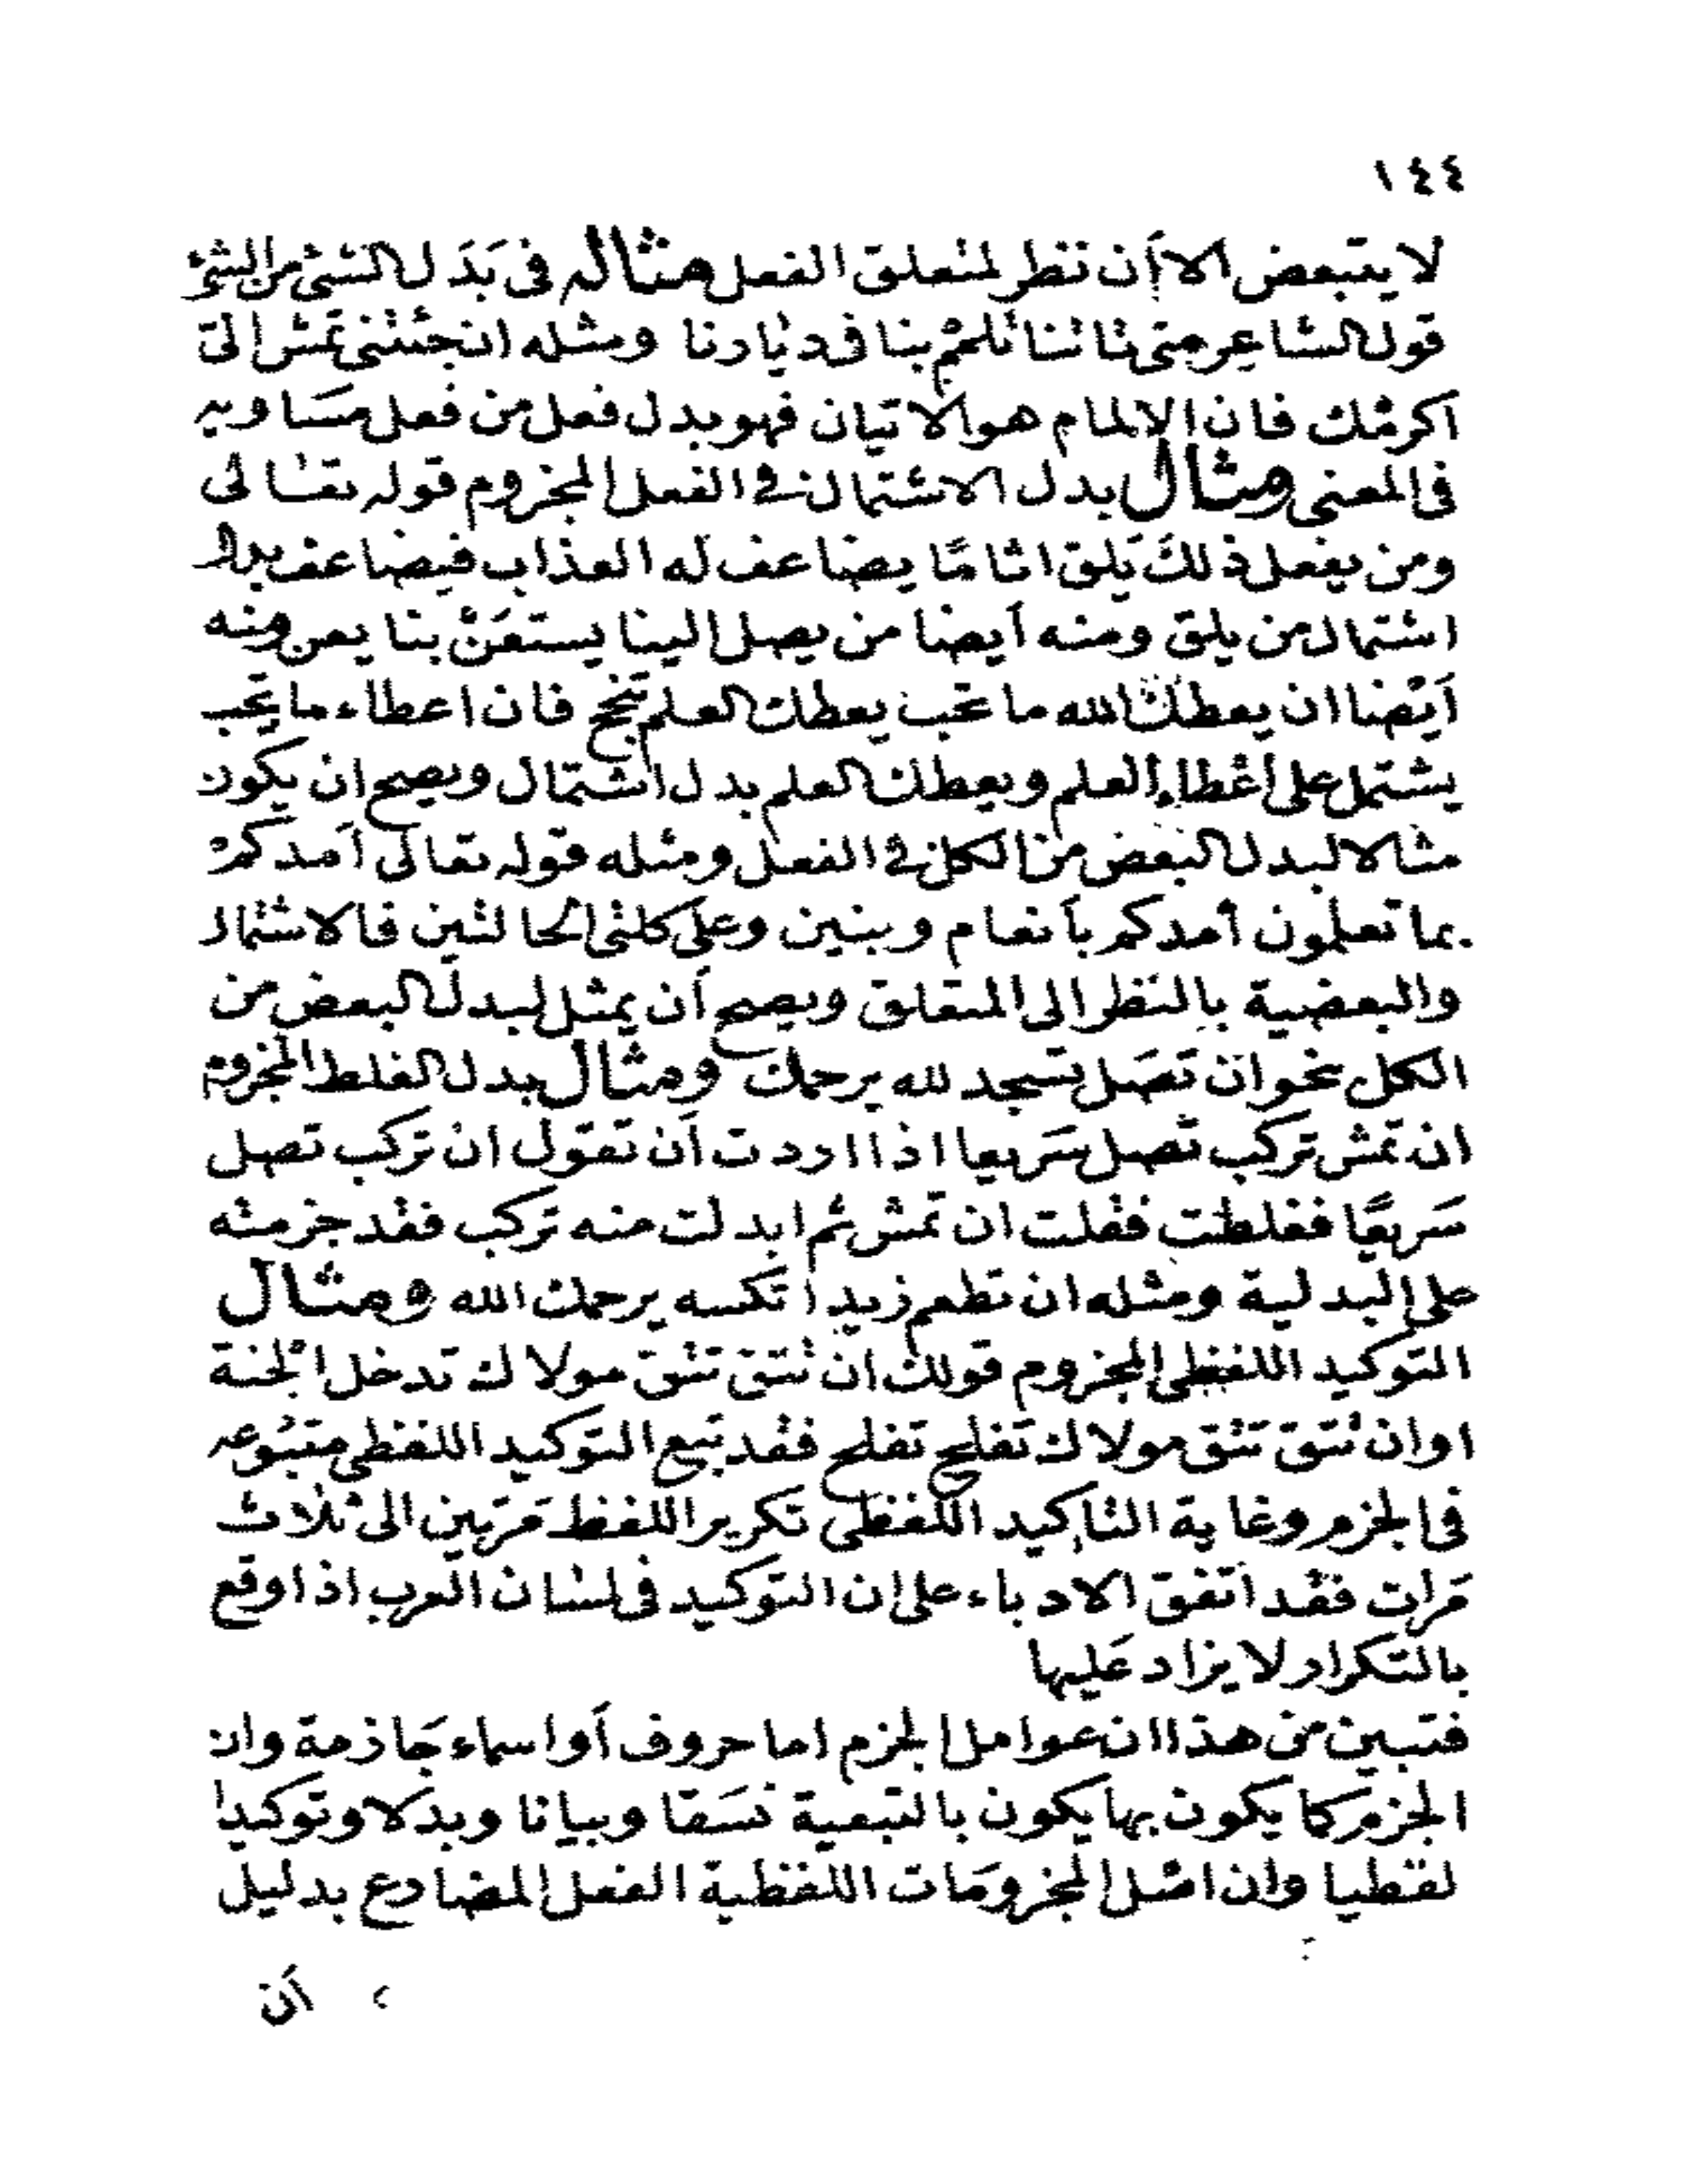 ١٤٤
لا يتبعض الا أن نظر لمتعلق الفعل مثاله فى بَدَل الشئ من الشئ
قول الشاعر متى تاتنا تلمم بنا فى ديارنا ومثله ان جئتنى تمش الىّ
اكرمك فان الالمام هو الاتيان فهو بدل فعل من فعل مسَاويه
فى المعنى ومثال بدل الاشتمال فى الفعل المجزوم قوله تعالى
ومن يفعل ذلكَ يَلق اثامًا يضاعف له العذاب فيضاعف بدل
اشتمال من يلق ومنه أيضا من يصل الينا يستعن بنا يعن ومنه
أيضا ان يعطك الله ما تحب يعطك العلم تنجح فان اعطاء ما يحب
يشتمل على اعطاء العلم ويعطك العلم بدل اشتمال ويصح ان يكون
مثالا لبدل البعض من الكل فى الفعل ومثله قوله تعالى أمدكم
بما تعلمون أمدكم بأنعام وبنين وعلى كلتى الحالتين فالاشتمال
والبعضية بالنظر الى المتعلق ويصح أن يمثل لبدل البعض من
الكل نحو ان تصَل تسجد لله يرحمك ومثال بدل الغلط المجزوم
ان تمش تركب تصل سَريعا اذا اردت أن تقول ان تركب تصل
سَريعًا فغلطت فقلت ان تمش ثم ابدلت منه تركب فقد جزمته
على البدلية ومثله ان تطعم زيدا تكسه يرحمك الله ومثال
التوكيد اللفظى المجزوم قولك ان تتق تتق مولاك تدخل الجنة
او ان تتق تتق مولاك تفلح تفلح فقد تبع التوكيد اللفظى متبوعه
فى الجزم وغاية التاكيد اللفظى تكرير اللفظ مَرتين الى ثلاث
مَرات فقد اتفق الادباء على ان التوكيد فى لسان العرب اذا وقع
بالتكرار لا يزاد عَليها
فتبين من هذا ان عوامل الجزم اما حروف أو اسماء جَازمة وان
الجزم كما يكون بها يكون بالتبعية نسَقا وبيانا وبدلا وتوكيدا
لفظيا وان اصل المجزومَات اللفظية الفعل المضارع بدليل
أن